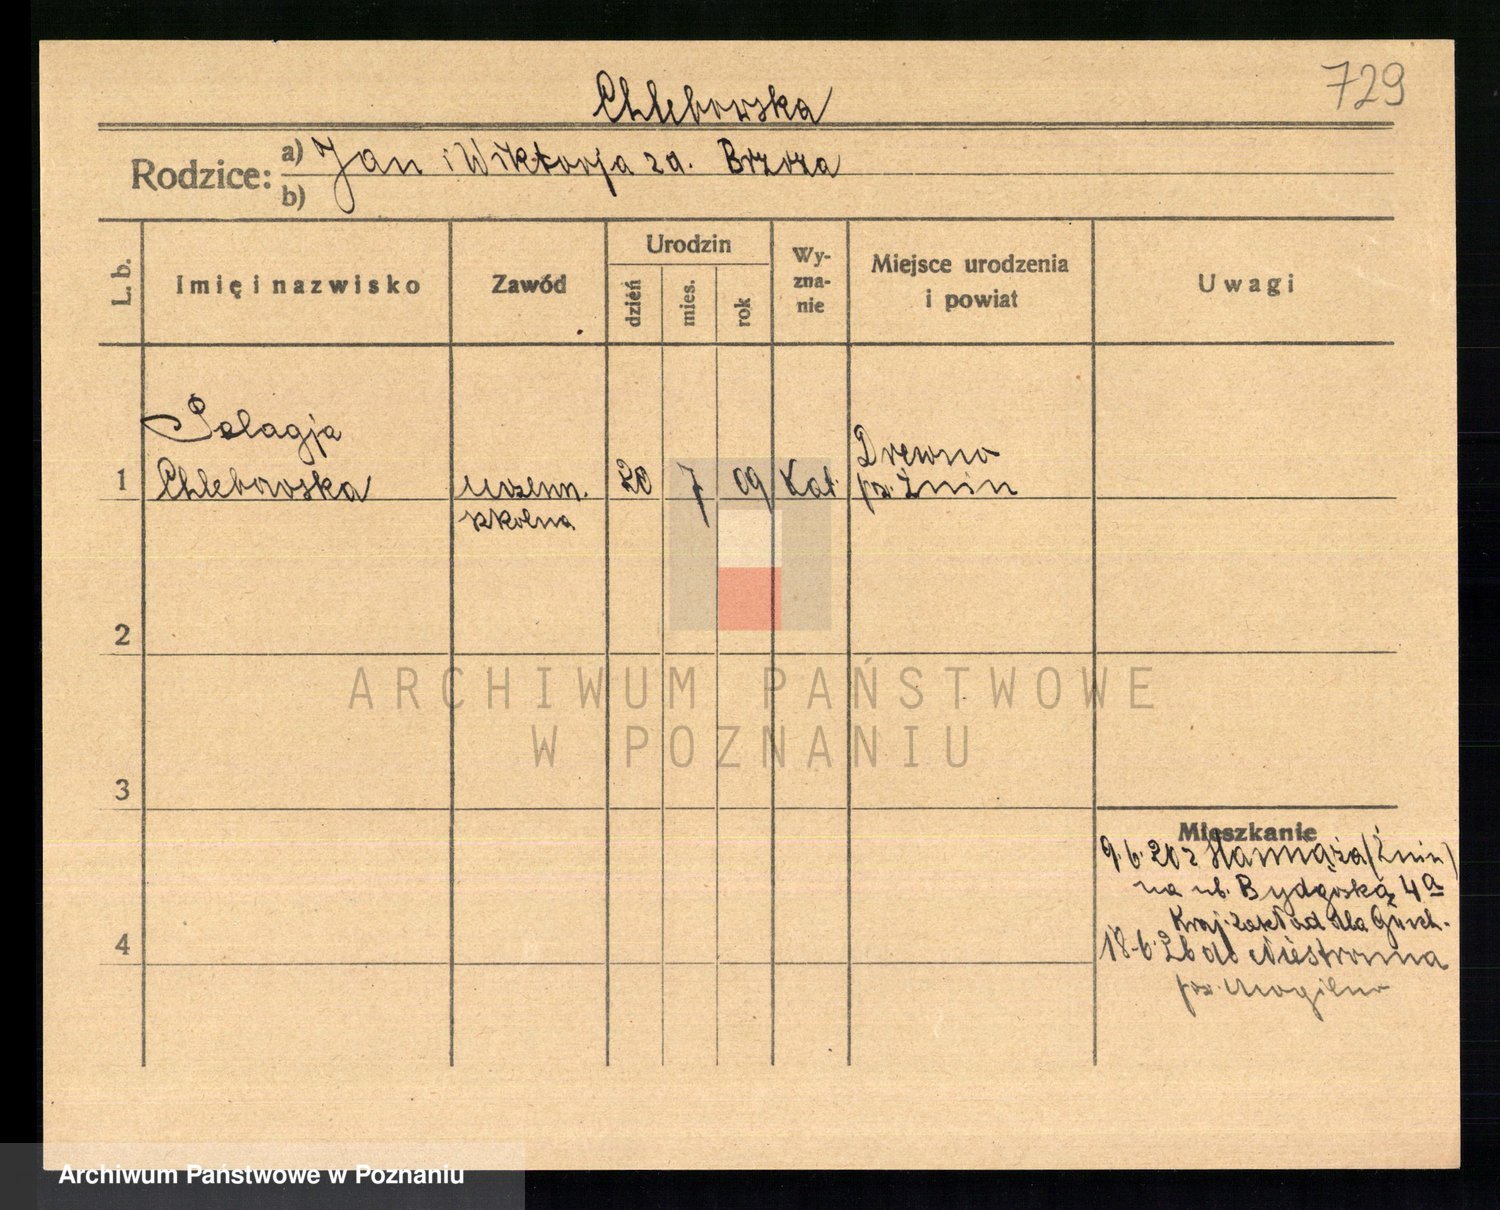 729
Chlebowska
Rodzice: a) Jan i Wiktorja za. Brzoza
b)
L. b.
Imię i nazwisko
Zawód
Urodzin
dzień
mies.
rok
Wy-
zna-
nie
Miejsce urodzenia
i powiat
Uwagi
Pelagja
1 Chlebowska
uczenn.
szkolna
20 7 09 Kat.
Drewno
pw. Żnin
2
3
4
Mieszkanie
9.6.20 z (Żnin)
na ul. Bydgoską 4a
Kraj. zakład dla Głuch.
18.6.26 do Niestronna
pow. Mogilno
ARCHIWUM PAŃSTWOWE
W POZNANIU
Archiwum Państwowe w Poznaniu